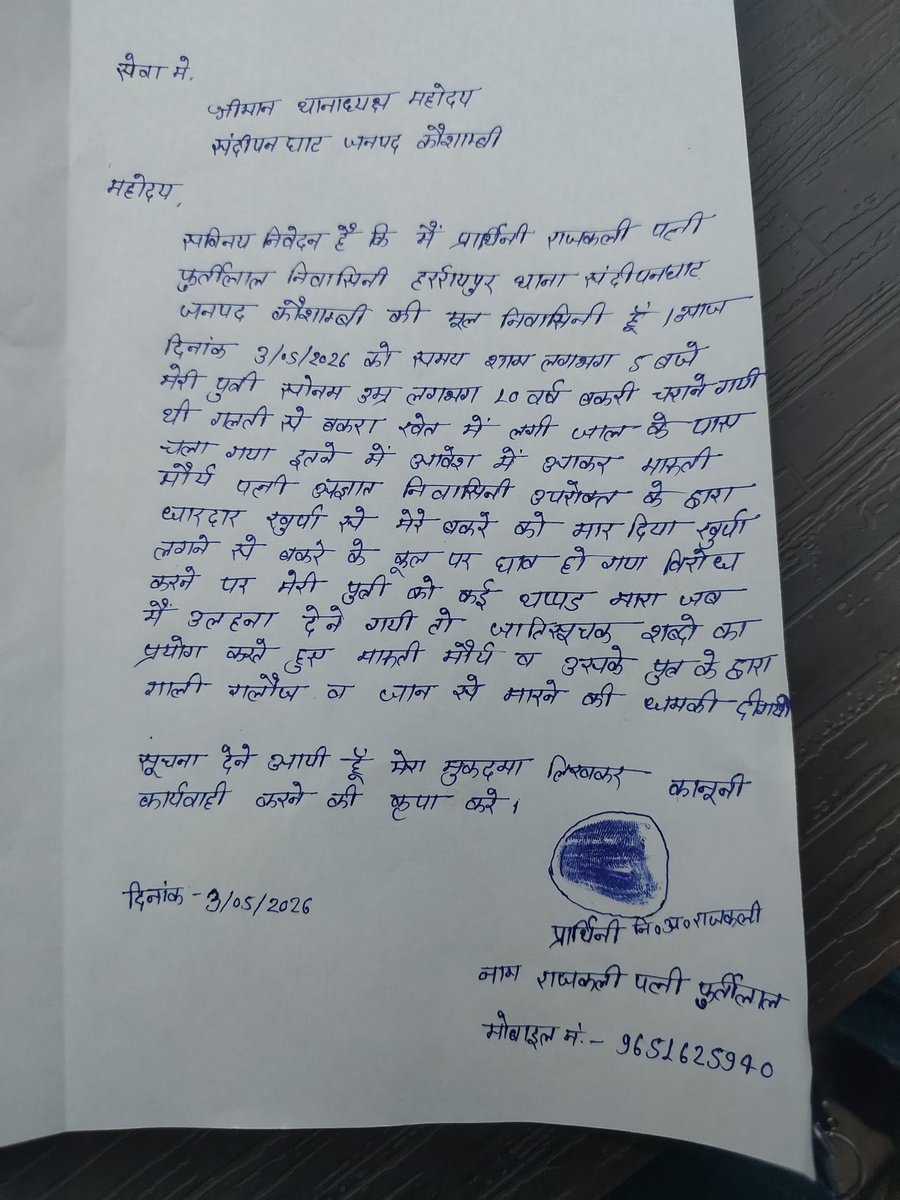 सेवा मे,
श्रीमान थानाध्यक्ष महोदय
संदीपन घाट जनपद कौशाम्बी
महोदय,
सविनय निवेदन है कि मैं प्रार्थिनी राजकली पत्नी
फुर्तीलाल निवासिनी हर्रायपुर थाना संदीपनघाट
जनपद कौशाम्बी की मूल निवासिनी हूँ । आज
दिनांक 3/05/2026 को समय शाम लगभग 5 बजे
मेरी पुत्री सोनम उम्र लगभग 10 वर्ष बकरी चराने गयी
थी गलती से बकरा खेत में लगी जाल के पास
चला गया इतने में आवेश में आकर मारुती
मौर्य पत्नी अज्ञात निवासिनी उपरोक्त के द्वारा
धारदार खुर्पी से मेरे बकरे को मार दिया खुर्पी
लगने से बकरे के कूल पर घाव हो गए विरोध
करने पर मेरी पुत्री को कई थप्पड मारा जब
मैं उलहना देने गयी तो जातिसूचक शब्दो का
प्रयोग करते हुए मारुती मौर्य व उसके पुत्र के द्वारा
गाली गलौज व जान से मारने की धमकी दी गयी
सूचना देने आयी हूँ मेरा मुकदमा लिखकर कानूनी
कार्यवाही करने की कृपा करे ।
दिनांक - 3/05/2026
प्रार्थिनी नि॰अ॰राजकली
नाम राजकली पत्नी फुर्तीलाल
मोबाइल नं:- 9651625940